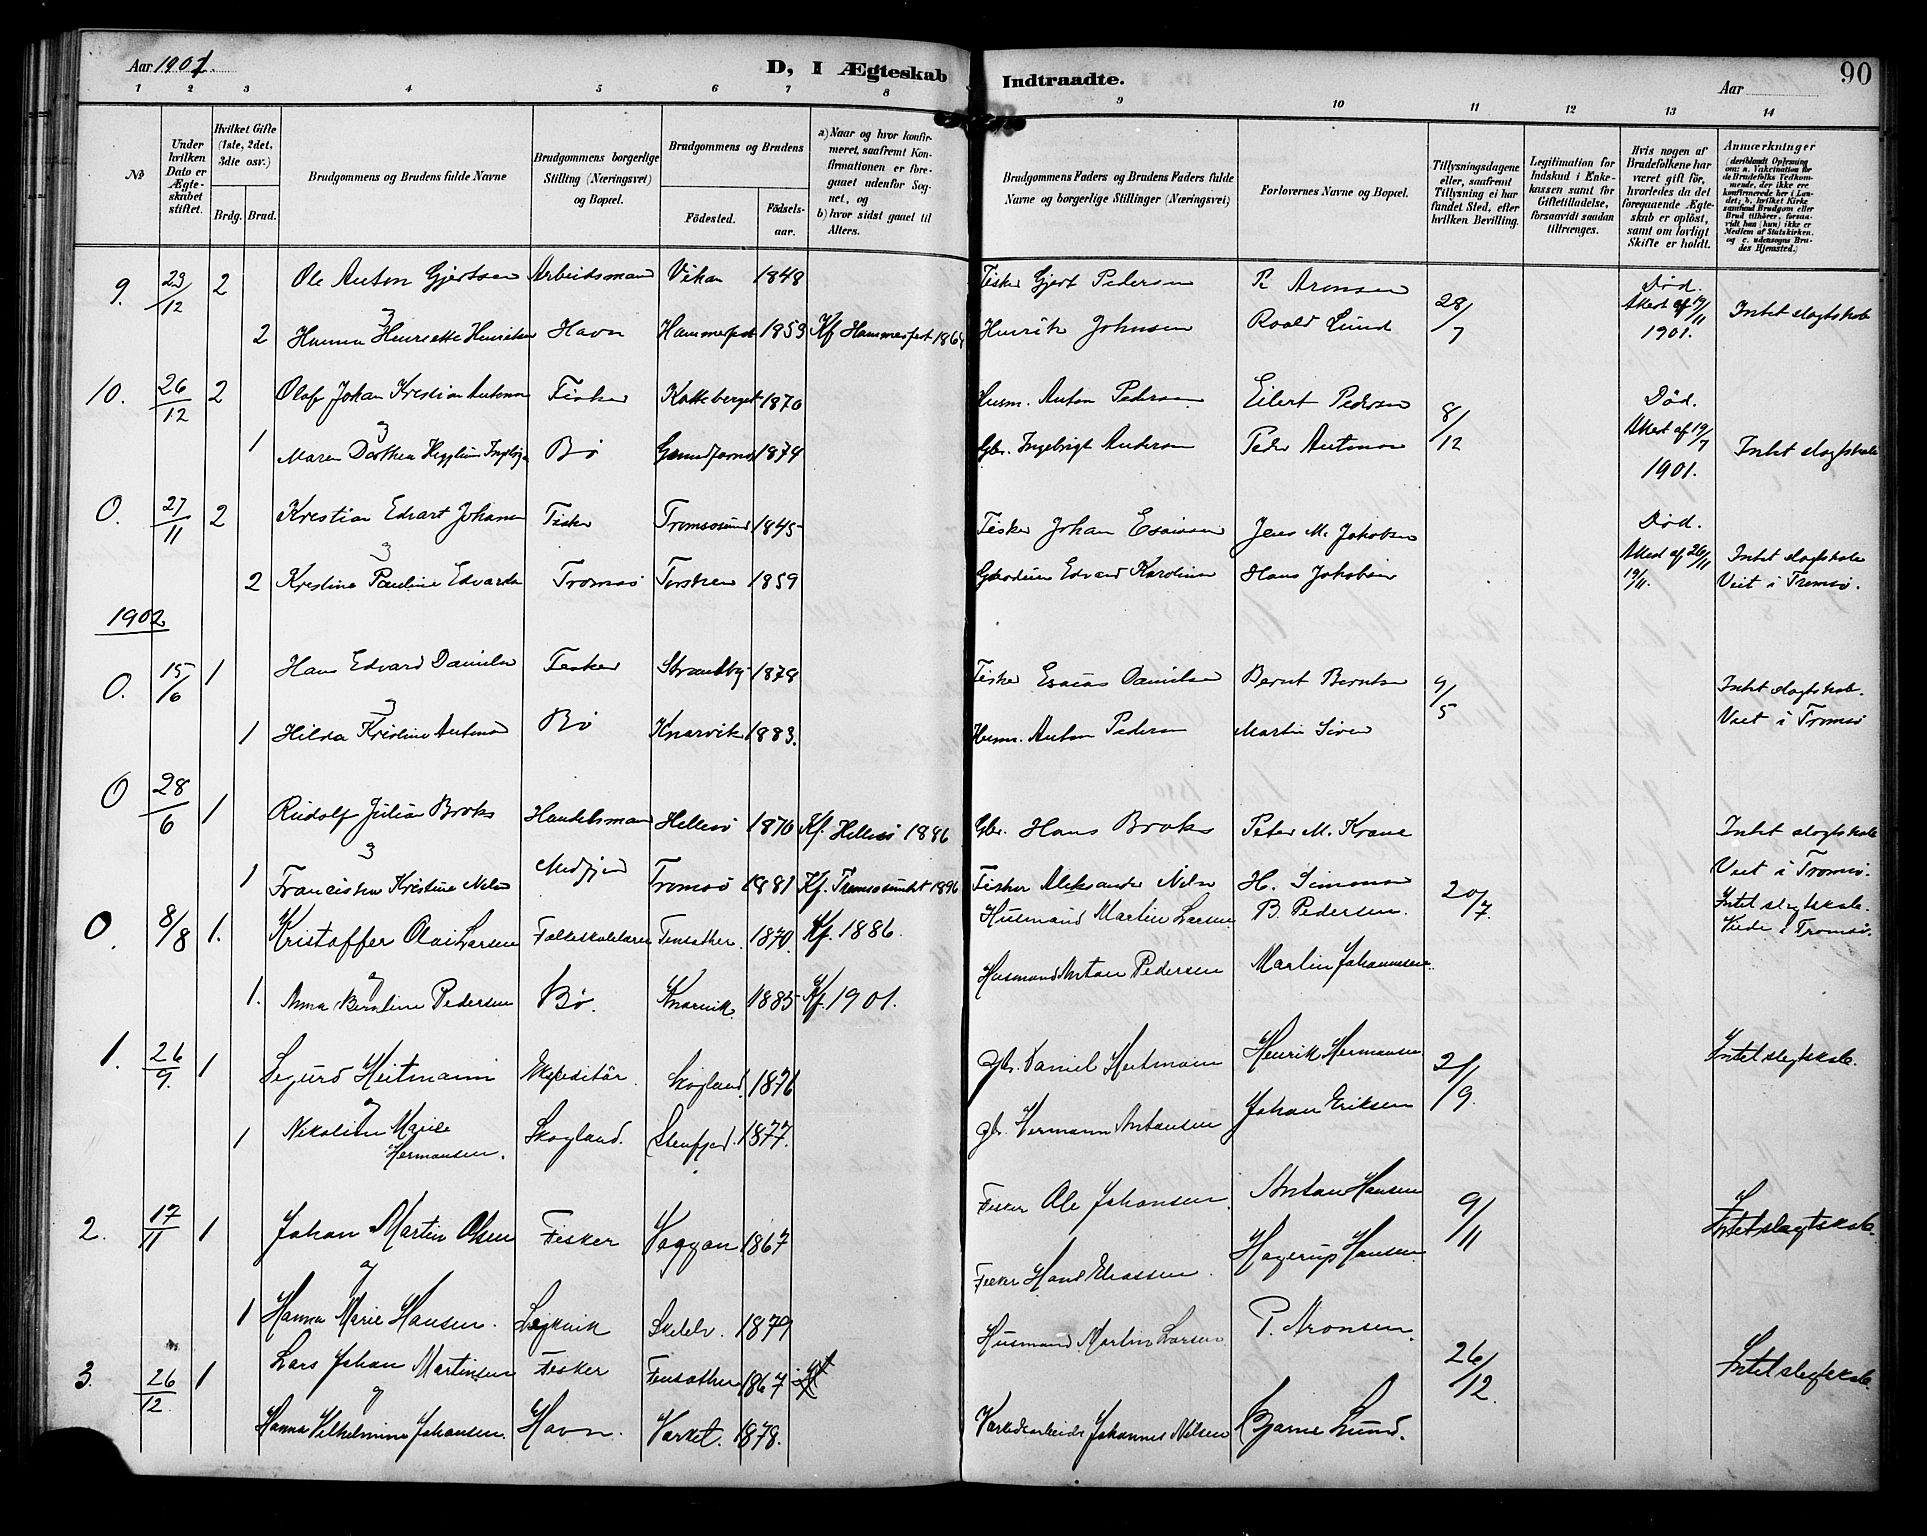 Aar 1901.
D, I Ægteskab Indtraadte.
Aar
90
1 2 3 4 5 6 7 8 9 10 11 12 13 14
No
Under hvilken Dato er Ægteskabet stiftet.
Hvilket Gifte (1ste, 2det, 3die osv.)
Brdg. Brud.
Brudgommens og Brudens fulde Navne
Brudgommens borgerlige Stilling (Næringsvei) og Bopæl.
Brudgommens og Brudens
Födested. Födselsaar.
a) Naar og hvor konfirmeret, saafremt Konfirmationen er foregaaet udenfor Sognet, og
b) hvor sidst gaaet til Alters.
Brudgommens Faders og Brudens Faders fulde Navne og borgerlige Stillinger (Næringsvei)
Forlovernes Navne og Bopæl.
Tillysningsdagene eller, saafremt Tillysning ei har fundet Sted, efter hvilken Bevilling.
Legitimation for Indskud i Enkekassen samt for Giftetilladelse, forsaavidt saadan tiltrænges.
Hvis nogen af Brudefolkene har været gift för, hvorledes da det foregaaende Ægteskab er oplöst, samt om lovligt Skifte er holdt.
Anmærkninger (deriblandt Oplysning om: a. Vakcination for de Brudefolks Vedkommende, der ikke ere konfirmerede her i Landet; b. hvilket Kirkesamfund Brudgom eller Brud tilhörer, forsaavidt han (hun) ikke er Medlem af Statskirken, og c. udensogns Brudes Hjemsted.)
9. 23/12 2 Ole Anton Gjertsen Arbeidsmand Vikan 1848 Fisker Gjert Pedersen P. Aronsen 28/7 Død. Attest af 19/11 1901. Intet slagtskab
2 Hanna Henriette Henriksen Havn Hammerfest 1853 Kf Hammerfest 1869 Henrik Johnsen Roald Lund
10. 26/12 2 Olaf Johan Kristian Antonsen Fisker Kotteberget 1870 Husm. Anton Pedersen Eilert Pedersen 8/12 Død. Attest af 19/7 1901. Intet slagtskab
1 Maren Dorthea Bø 1874 Gbr. Ingebrigt Andersen Peder Antonsen
0. 27/11 2 Kristian Edvart Johansen Fisker Tromsøsund 1845 Fisker Johan Esaiasen Jens M. Jakobsen Død. Attest af 26/11 Intet slagtskab
2 Kristine Pauline Edvardsen Tromsø Torsken 1859 Edvard Karolius Hans Jakobsen 19/11. Viet i Tromsø.
1902
0. 15/6 1 Hans Edvard Danielsen Fisker Strandby 1878 Fisker Esaias Danielsen Bernt Berntsen 9/5 Intet slagtskab.
1 Hilda Kristine Antonsen Bø Knarvik 1883. Husm. Anton Pedersen Martin Siversen Viet i Tromsø
0 28/6 1 Rudolf Julian Broks Handelsmand Hellesø 1870 Kf. Hellesø 1886 Gbr. Hans Broks Peter M. Krane Intet slagtskab
1 Francisken Kristine Nilsen Medfjord Tromsø 1881 Kf. Tromsøsundet 1896 Fisker Aleksander Nilsen H. Simonsen Viet i Tromsø.
0. 8/8 1. Kristoffer Olai Larsen Folkeskolelærer Finsæther. 1870 Kf. 1886. Husmand Martin Larsen B. Pedersen. 20/7. Intet slegtskab. Viede i Tromsø.
1. Anna Berntine Pedersen Bø. Knarvik. 1885 Kf. 1901. Husmand Anton Pedersen Martin Johannesen.
1. 26/9. 1 Sigurd Heitmann Expeditör. Skogland. 1876 Gb. Daniel Heitmann Henrik Hermansen 21/9. Intet slegtskab.
1 Nikoline Marie Hermansen. Skogland. Stenfjord. 1877. Gb. Hermann Antonsen Johan Eriksen
2. 17/11 1 Johan Martin Olsen Fisker Vaggan 1867 Fisker Ole Johansen Anton Hansen 9/11 Intet slagtskab.
og
1 Hanna Marie Hansen. Leikvik Skelelv. 1879 Fisker Hans Eliassen. Hagerup Hansen
3. 26/12 1 Lars Johan Martinsen Fisker Finsæther 1867 Husmand Martin Larsen P. Aronsen. 26/12. Intet slegtskab.
og
Hanna Vilhelmine Johansen. Havn. Værket. 1878. Johannes Nilsen Bjarne Lund.